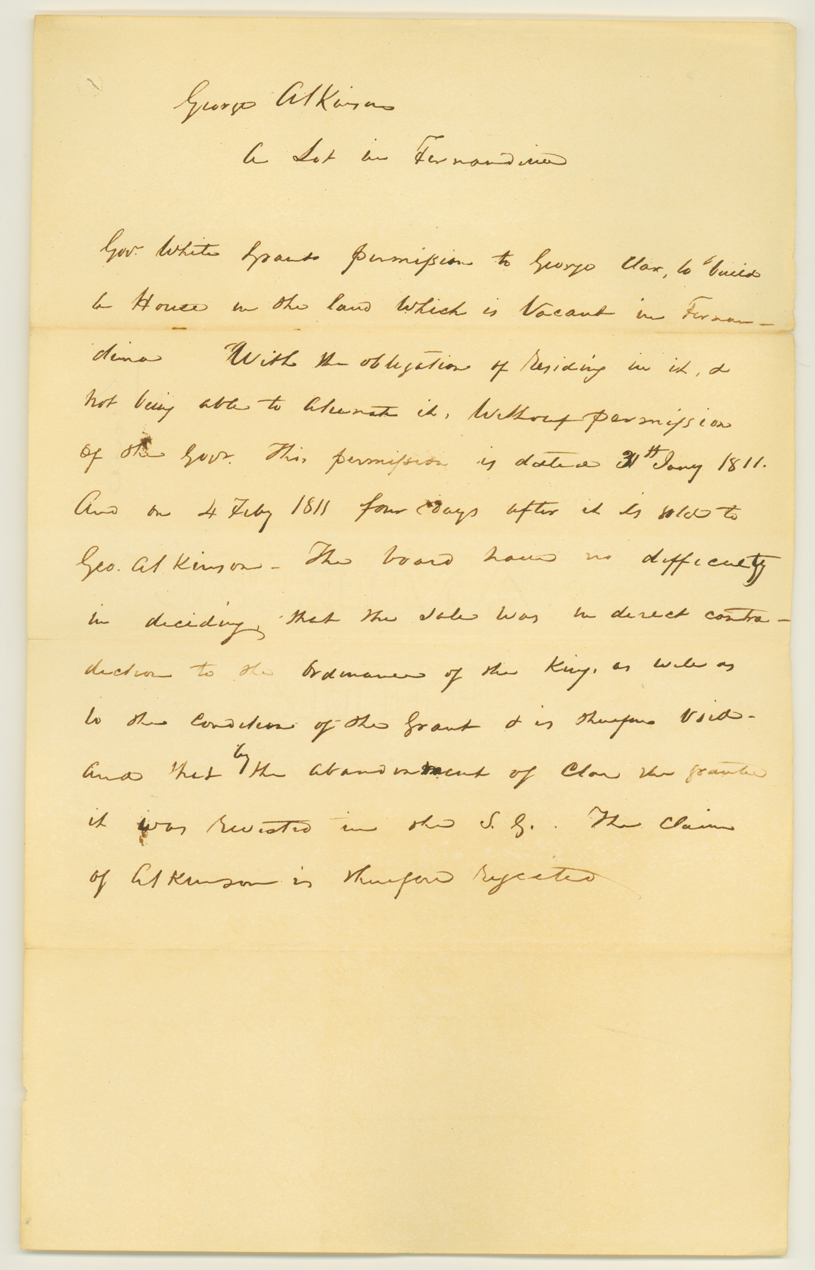 George Atkinson
A Lot in Fernandina
Gov. White Grants permission to George Clar, to build
a House in the land Which is Vacant in Fernan-
dina With the obligation of residing in it, &
not being able to alienate it, Without permission
of the Govr. This permission is dated 31th Jany 1811.
And on 4 Feby 1811 four days after it is sold to
Geo. Atkinson - The board have no difficulty
in deciding, that the sale was in direct contra-
diction to the Ordinance of the King, as well as
to the Condition of the Grant & is therefore Void -
And that by the abandonment of Clar the grantee
it was revested in the S. G. . The Claim
of Atkinson is therefore rejected